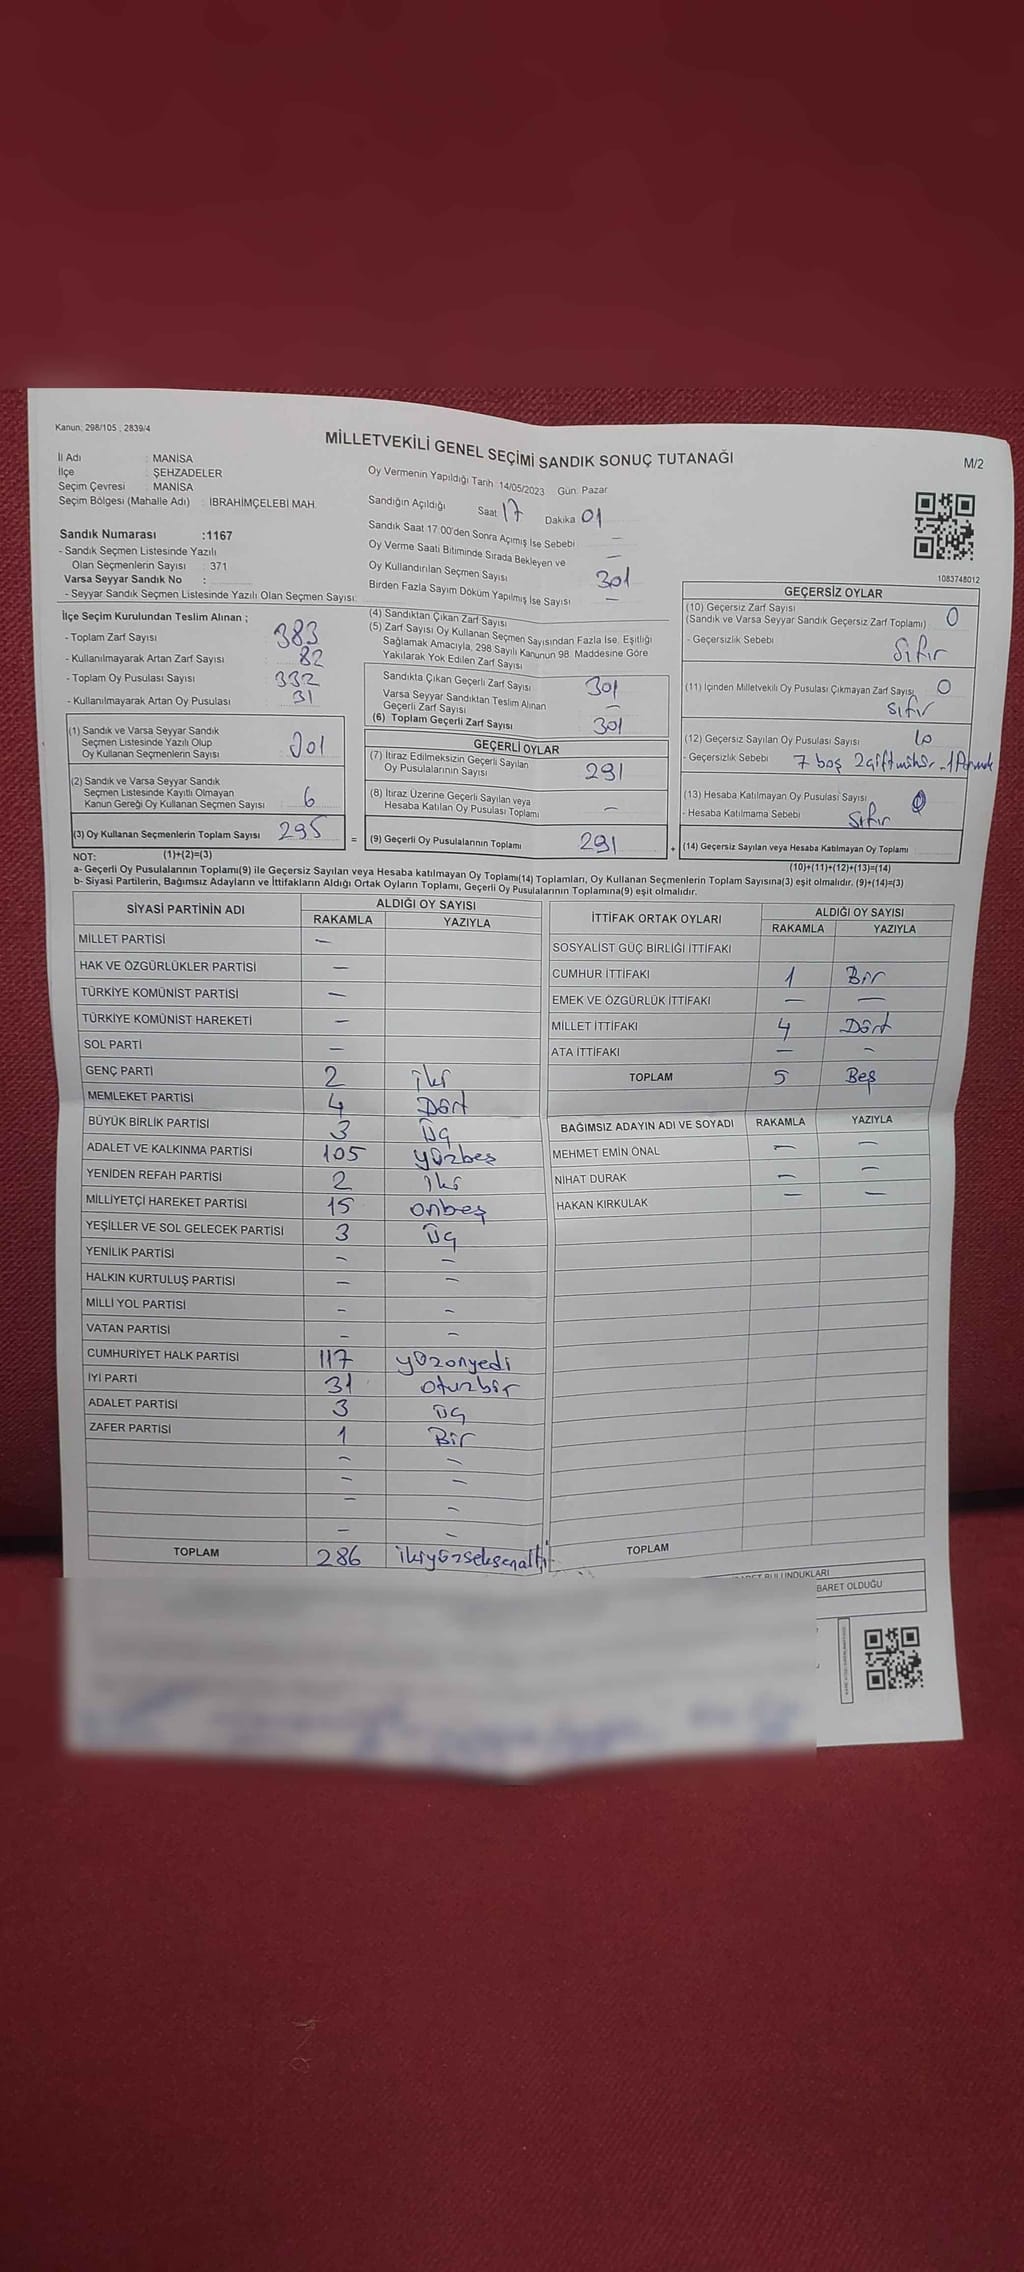 Kanun: 298/105 , 2839/4
MİLLETVEKİLİ GENEL SEÇİMİ SANDIK SONUÇ TUTANAĞI
M/2
İl Adı : MANİSA
İlçe : ŞEHZADELER
Seçim Çevresi : MANİSA
Seçim Bölgesi (Mahalle Adı) : İBRAHİMÇELEBİ MAH.
Oy Vermenin Yapıldığı Tarih : 14/05/2023 Gün: Pazar
Sandığın Açıldığı Saat 17 Dakika 01
Sandık Saat 17:00'den Sonra Açımış İse Sebebi –
Oy Verme Saati Bitiminde Sırada Bekleyen ve –
Oy Kullandırılan Seçmen Sayısı 301
Birden Fazla Sayım Döküm Yapılmış İse Sayısı –
1083748012
Sandık Numarası :1167
- Sandık Seçmen Listesinde Yazılı
Olan Seçmenlerin Sayısı : 371
Varsa Seyyar Sandık No :
- Seyyar Sandık Seçmen Listesinde Yazılı Olan Seçmen Sayısı:
İlçe Seçim Kurulundan Teslim Alınan ;
- Toplam Zarf Sayısı 383
- Kullanılmayarak Artan Zarf Sayısı 82
- Toplam Oy Pusulası Sayısı 332
- Kullanılmayarak Artan Oy Pusulası 31
(1) Sandık ve Varsa Seyyar Sandık
Seçmen Listesinde Yazılı Olup
Oy Kullanan Seçmenlerin Sayısı
(2) Sandık ve Varsa Seyyar Sandık
Seçmen Listesinde Kayıtlı Olmayan
Kanun Gereği Oy Kullanan Seçmen Sayısı 6
(3) Oy Kullanan Seçmenlerin Toplam Sayısı 295 =
(1)+(2)=(3)
(4) Sandıktan Çıkan Zarf Sayısı
(5) Zarf Sayısı Oy Kullanan Seçmen Sayısından Fazla İse, Eşitliği
Sağlamak Amacıyla, 298 Sayılı Kanunun 98. Maddesine Göre
Yakılarak Yok Edilen Zarf Sayısı
Sandıkta Çıkan Geçerli Zarf Sayısı 301
Varsa Seyyar Sandıktan Teslim Alınan
Geçerli Zarf Sayısı –
(6) Toplam Geçerli Zarf Sayısı 301
GEÇERLİ OYLAR
(7) İtiraz Edilmeksizin Geçerli Sayılan
Oy Pusulalarının Sayısı 291
(8) İtiraz Üzerine Geçerli Sayılan veya
Hesaba Katılan Oy Pusulası Toplamı –
(9) Geçerli Oy Pusulalarının Toplamı 291 +
GEÇERSİZ OYLAR
(10) Geçersiz Zarf Sayısı
(Sandık ve Varsa Seyyar Sandık Geçersiz Zarf Toplamı) 0
- Geçersizlik Sebebi Sıfır
(11) İçinden Milletvekili Oy Pusulası Çıkmayan Zarf Sayısı 0
sıfır
(12) Geçersiz Sayılan Oy Pusulası Sayısı 10
- Geçersizlik Sebebi 7 boş 2 çift mühür - 1
(13) Hesaba Katılmayan Oy Pusulası Sayısı 0
- Hesaba Katılmama Sebebi Sıfır
(14) Geçersiz Sayılan veya Hesaba Katılmayan Oy Toplamı
(10)+(11)+(12)+(13)=(14)
NOT:
a- Geçerli Oy Pusulalarının Toplamı(9) ile Geçersiz Sayılan veya Hesaba katılmayan Oy Toplamı(14) Toplamları, Oy Kullanan Seçmenlerin Toplam Sayısına(3) eşit olmalıdır. (9)+(14)=(3)
b- Siyasi Partilerin, Bağımsız Adayların ve İttifakların Aldığı Ortak Oyların Toplamı, Geçerli Oy Pusulalarının Toplamına(9) eşit olmalıdır.
SİYASİ PARTİNİN ADI ALDIĞI OY SAYISI
RAKAMLA YAZIYLA
MİLLET PARTİSİ –
HAK VE ÖZGÜRLÜKLER PARTİSİ –
TÜRKİYE KOMÜNİST PARTİSİ –
TÜRKİYE KOMÜNİST HAREKETİ –
SOL PARTİ –
GENÇ PARTİ 2 iki
MEMLEKET PARTİSİ 4 Dört
BÜYÜK BİRLİK PARTİSİ 3 Üç
ADALET VE KALKINMA PARTİSİ 105 yüzbeş
YENİDEN REFAH PARTİSİ 2 İki
MİLLİYETÇİ HAREKET PARTİSİ 15 onbeş
YEŞİLLER VE SOL GELECEK PARTİSİ 3 Üç
YENİLİK PARTİSİ – –
HALKIN KURTULUŞ PARTİSİ – –
MİLLİ YOL PARTİSİ – –
VATAN PARTİSİ – –
CUMHURİYET HALK PARTİSİ 117 yüzonyedi
İYİ PARTİ 31 otuzbir
ADALET PARTİSİ 3 üç
ZAFER PARTİSİ 1 Bir
– –
– –
– –
– –
TOPLAM 286 ikiyüzseksenaltı
İTTİFAK ORTAK OYLARI ALDIĞI OY SAYISI
RAKAMLA YAZIYLA
SOSYALİST GÜÇ BİRLİĞİ İTTİFAKI
CUMHUR İTTİFAKI 1 Bir
EMEK VE ÖZGÜRLÜK İTTİFAKI – –
MİLLET İTTİFAKI 4 Dört
ATA İTTİFAKI – –
TOPLAM 5 Beş
BAĞIMSIZ ADAYIN ADI VE SOYADI RAKAMLA YAZIYLA
MEHMET EMİN ÖNAL – –
NİHAT DURAK – –
HAKAN KIRKULAK – –
TOPLAM
BULUNDUKLARI
BARET OLDUĞU